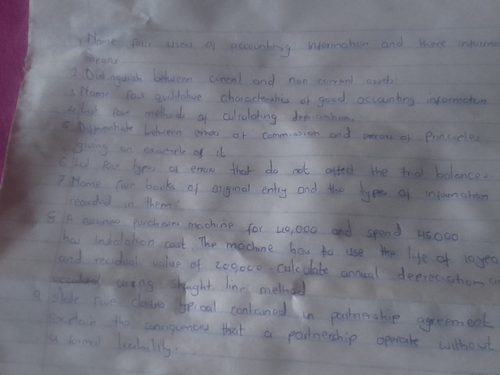 1. Name four users of accounting information and there
means.
2. Distinguish between current and non current assets
3. Name four qualitative characteristics of good accounting information
4. List four methods of calculating depreciation.
5. Differentiate between errors of commission and errors of Principles
giving an example of it
6. List four types of errors that do not affect the trial balance.
7. Name five books of original entry and the types of information
recorded in them.
8. A Business purchases machine for and spend 45000
has installation cost. The machine has to use the life of 10 years
and residual value of 200,000 calculate annual depreciation
using straight line method
9. State five clauses typical contained in partnership agreement
explain the consequences that a partnership operate without
a formal